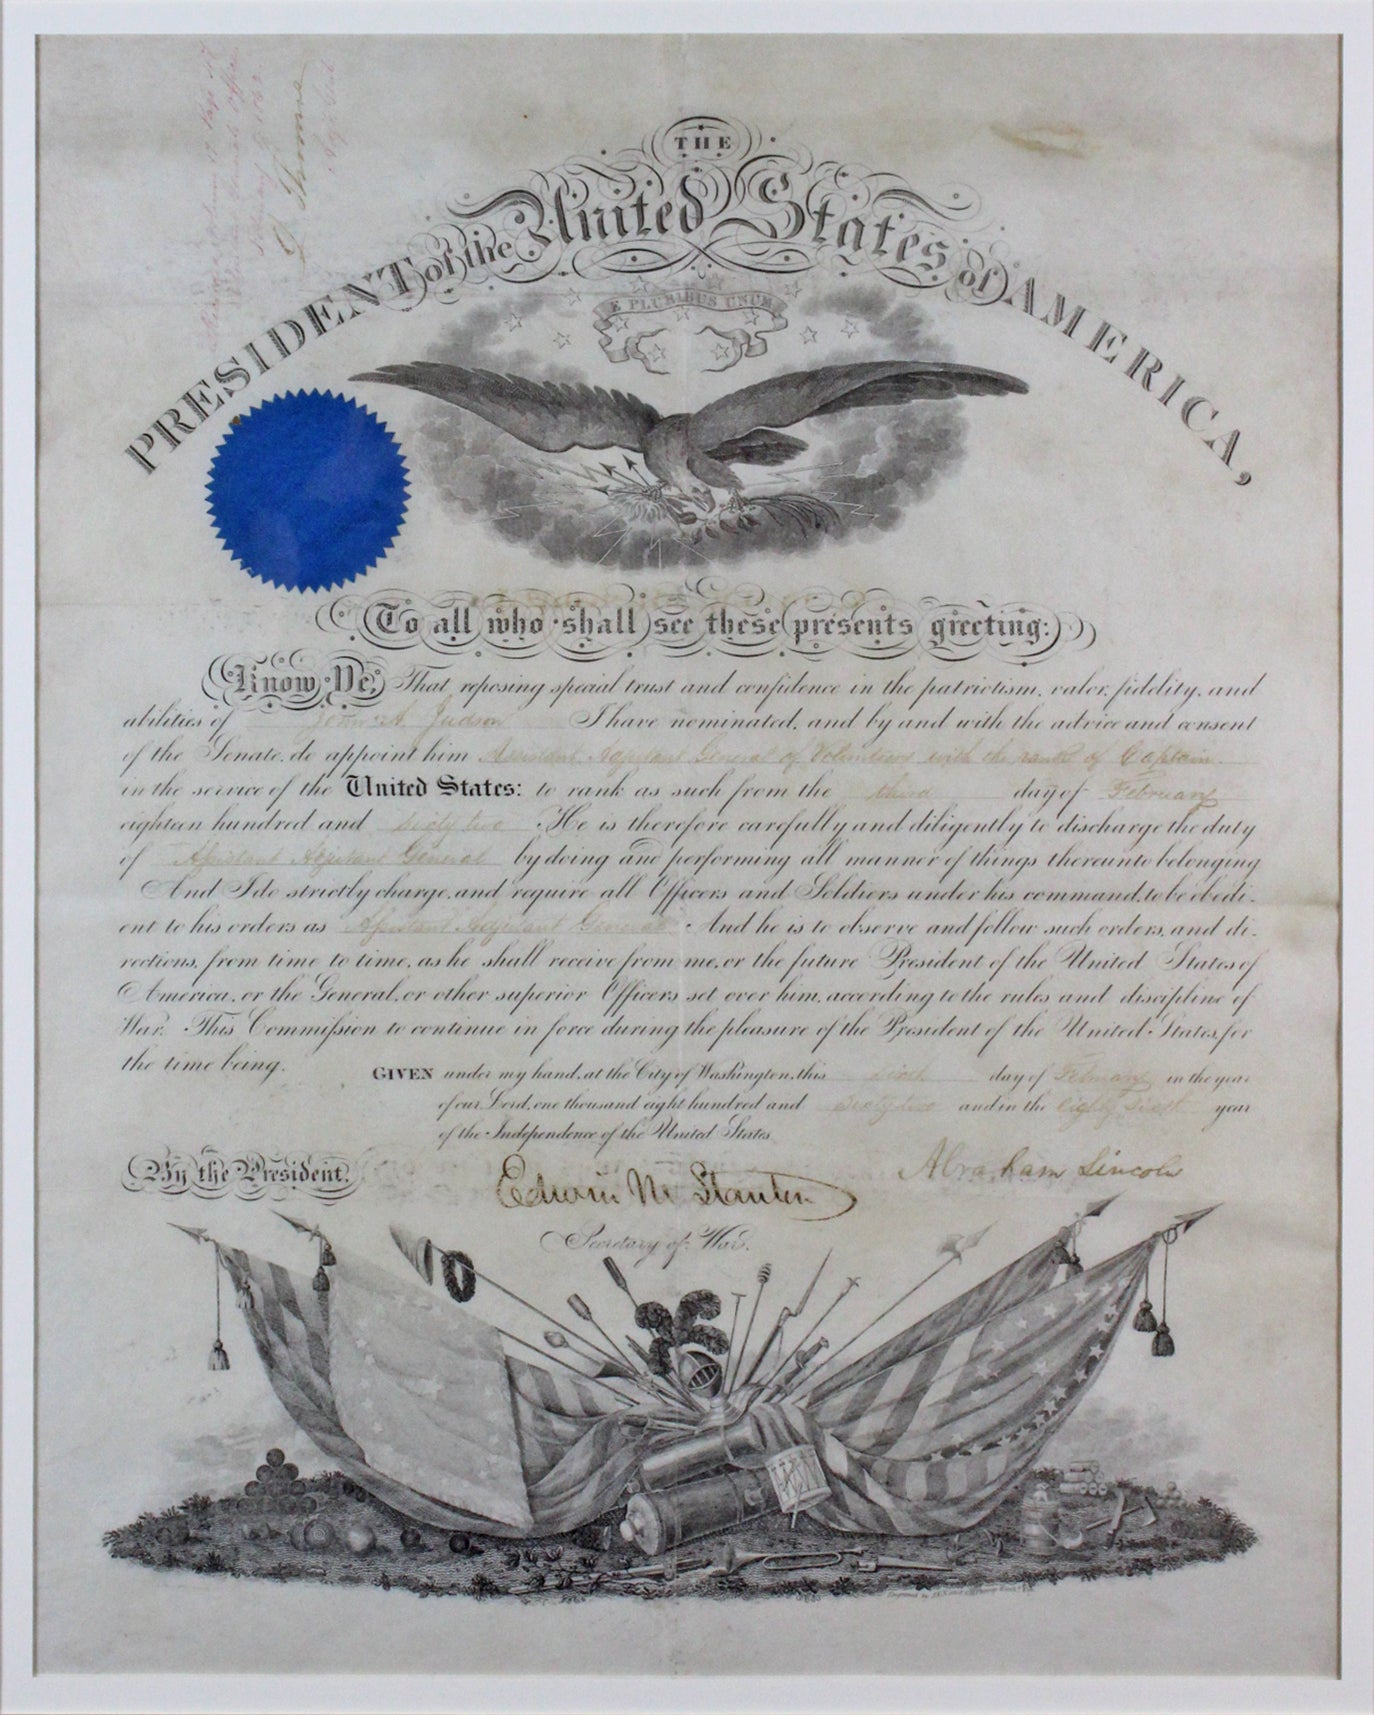 THE
PRESIDENT of the United States of AMERICA,
E PLURIBUS UNUM
To all who shall see these presents greeting:
Know Ye, That reposing special trust and confidence in the patriotism, valor, fidelity, and
abilities of John A. Judson I have nominated, and by and with the advice and consent
of the Senate, do appoint him Assistant Adjutant General of Volunteers with the rank of Captain
in the service of the United States: to rank as such from the third day of February
eighteen hundred and sixty two He is therefore carefully and diligently to discharge the duty
of Assistant Adjutant General by doing and performing all manner of things thereunto belonging
And I do strictly charge, and require all Officers and Soldiers under his command, to be obedi-
ent to his orders as Assistant Adjutant General And he is to observe and follow such orders, and di-
rections, from time to time, as he shall receive from me, or the future President of the United States of
America, or the General, or other superior Officers set over him, according to the rules and discipline of
War. This Commission to continue in force during the pleasure of the President of the United States, for
the time being.
GIVEN under my hand, at the City of Washington, this sixth day of February in the year
of our Lord, one thousand eight hundred and sixty two and in the eighty sixth year
of the Independence of the United States
By the President.
Abraham Lincoln
Edwin M Stanton
Secretary of War.
L Thomas